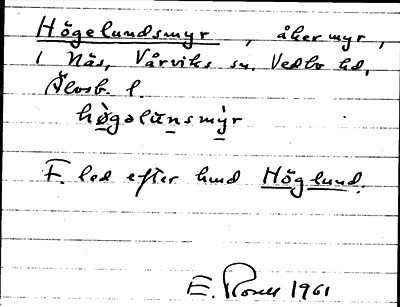 Högelundsmyr, åker myr,
1 Näs, Vårviks sn. Vedbo hd,
Älvsb. l.
hògəlùnsmỳr
F. led efter lund Höglund.
E. 1961